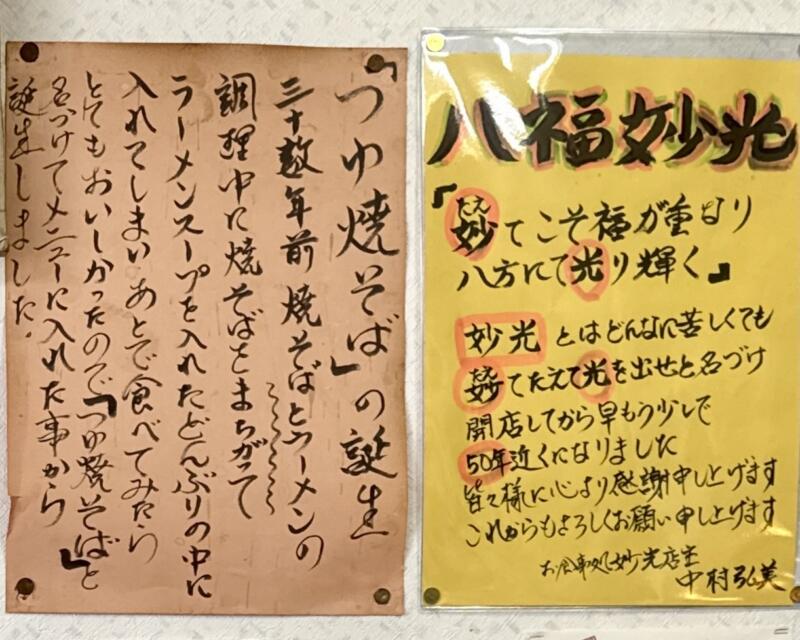 「つゆ焼そば」の誕生
三十数年前焼そばとラーメンの
調理中に焼そばとまちがって
ラーメンスープを入れたどんぶりの中に
入れてしまいあとで食べてみたら
とてもおいしかったので「つゆ焼そば」と
名づけてメニューに入れた事から
誕生しました.
八福妙光
たえ
『妙てこそ福が重なり
八方にて光り輝く』
妙光とはどんなに苦しくても
てたえて光を出せと名づけ
開店してから早もう少しで
50年近くになりました
皆々様に心より感謝申し上げます
これからもよろしくお願い申し上げます
お食事処妙光店主
中村弘美